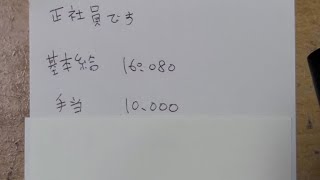 正社員です
基本給 160.080
手当 10.000